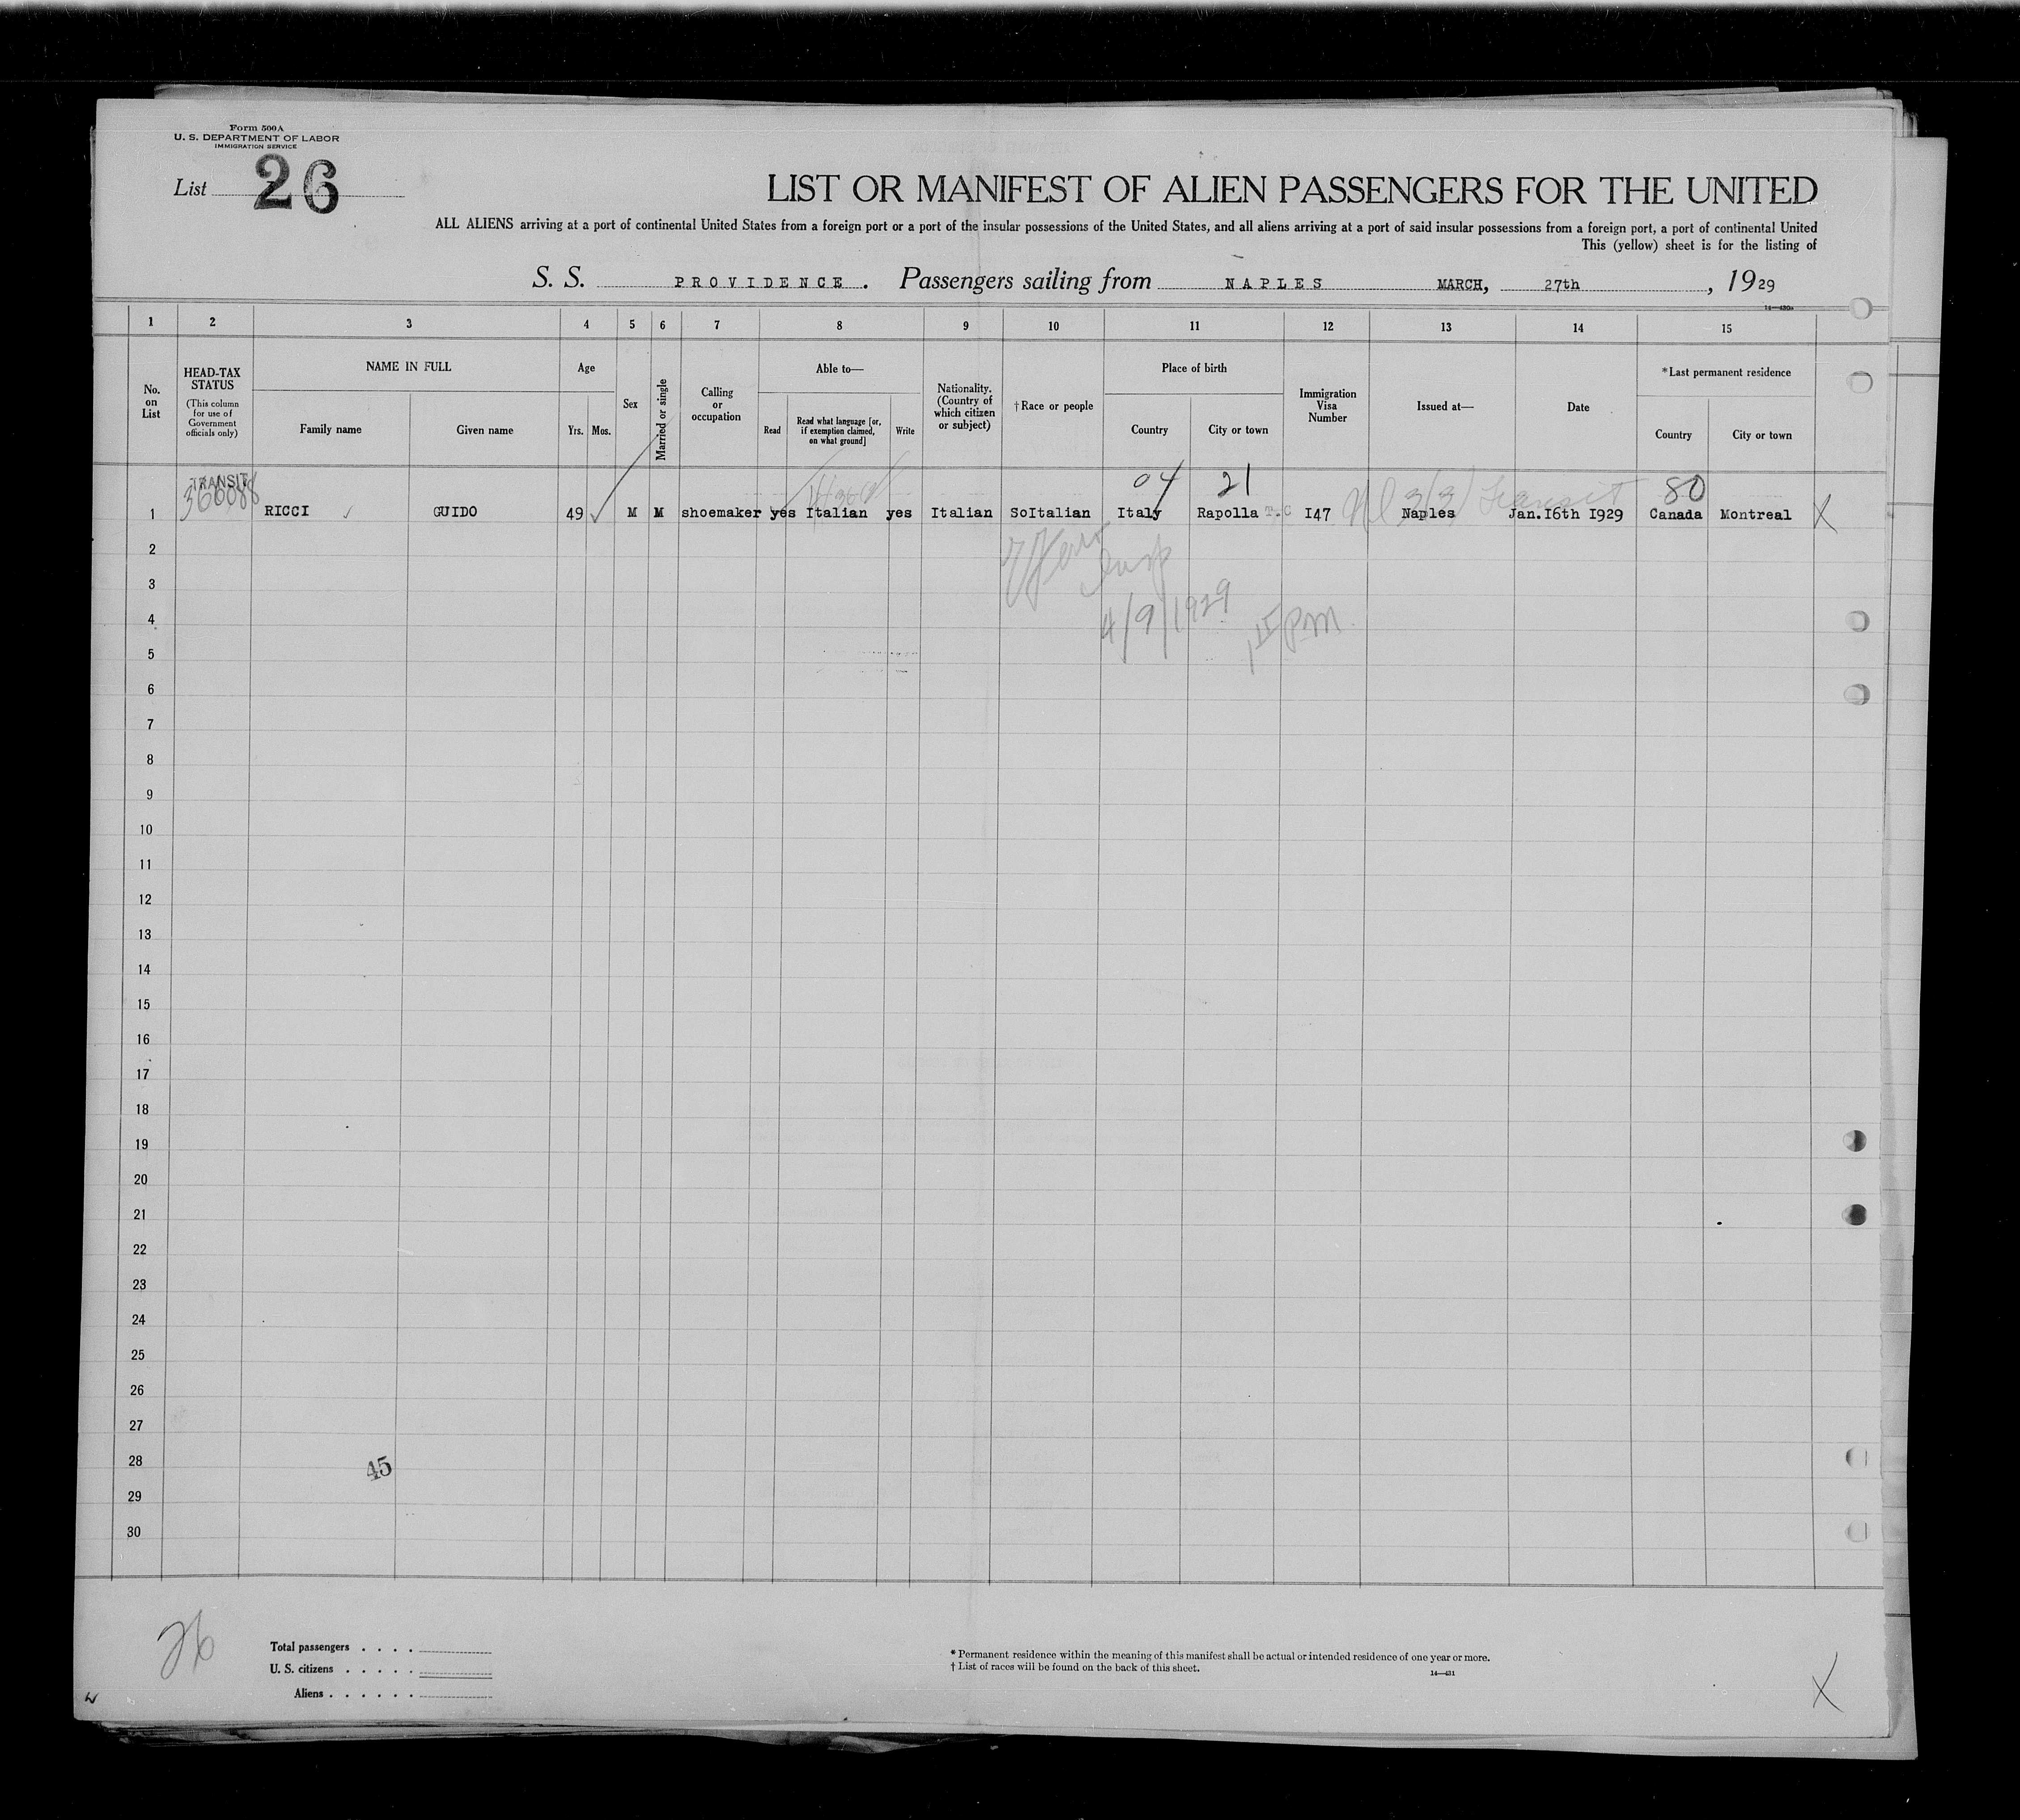 Form 500A
U. S. DEPARTMENT OF LABOR
IMMIGRATION SERVICE
List 26
LIST OR MANIFEST OF ALIEN PASSENGERS FOR THE UNITED
ALL ALIENS arriving at a port of continental United States from a foreign port or a port of the insular possessions of the United States, and all aliens arriving at a port of said insular possessions from a foreign port, a port of continental United
This (yellow) sheet is for the listing of
S. S. PROVIDENCE. Passengers sailing from NAPLES MARCH, 27th , 1929
14—430a
1 2 3 4 5 6 7 8 9 10 11 12 13 14 15
No. on List
HEAD-TAX STATUS
(This column for use of Government officials only)
NAME IN FULL
Family name
Given name
Age
Yrs. Mos.
Sex
Married or single
Calling or occupation
Able to—
Read
Read what language [or, if exemption claimed, on what ground]
Write
Nationality. (Country of which citizen or subject)
†Race or people
Place of birth
Country
City or town
Immigration Visa Number
Issued at—
Date
*Last permanent residence
Country
City or town
TRANSIT 04 21 Transit 80
366088
1 RICCI GUIDO 49 M M shoemaker yes Italian yes Italian SoItalian Italy Rapolla T.C I47 Naples Jan.I6th I929 Canada Montreal X
2
Insp
3
4/9/1929
4
PM
5
6
7
8
9
10
11
12
13
14
15
16
17
18
19
20
21
22
23
24
25
26
27
28
45
29
30
26
Total passengers
U. S. citizens
Aliens
* Permanent residence within the meaning of this manifest shall be actual or intended residence of one year or more.
† List of races will be found on the back of this sheet.
14—431
X